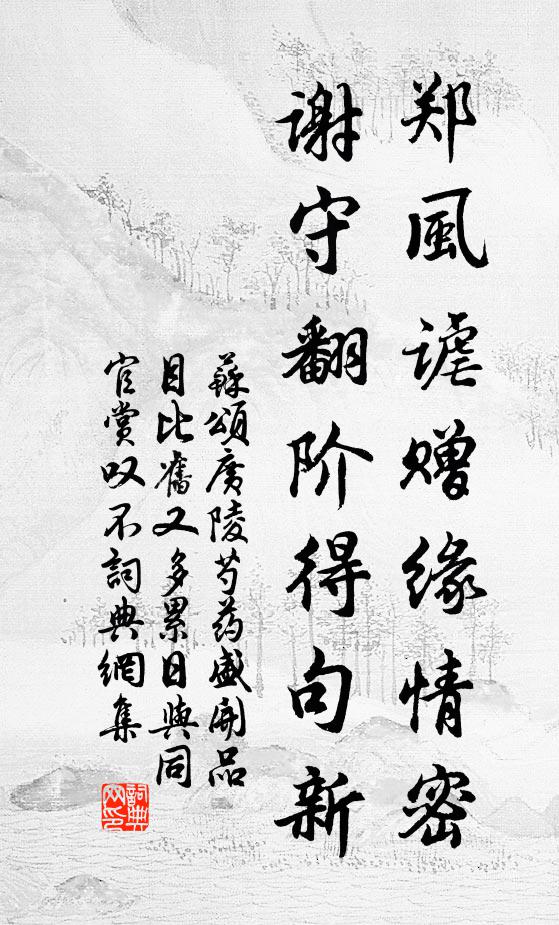 郑風谑赠缘情密
谢守翻阶得句新
蘇頌廣陵芍药盛開品
目比舊又多累日與同
官赏叹不詞典網集
詞典网印